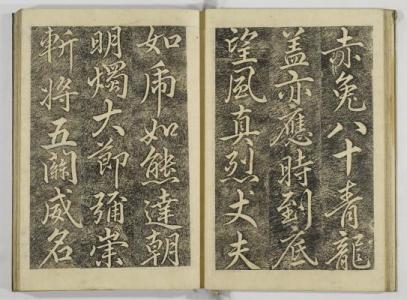 赤兔八十青龍
盖亦應時到底
望風真烈丈夫
如虎如熊達朝
明燭大節彌崇
斬將五關威名